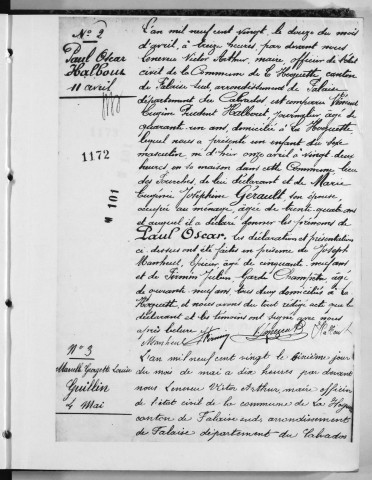 N° 2
Paul Oscar
Halbout
11 avril
1172
101
L'an mil neuf cent vingt, le douze du mois
d'avril, à heures, par devant nous
Leneveu Victor Arthur, maire, officier de l'état
civil de la Commune de la Hoguette, canton
de Falaise sud, arrondissement de Falaise
département du Calvados est comparu
Eugène Halbout, journalier, âgé de
quarante un ans, domicilié à la Hoguette,
lequel nous a présenté un enfant du sexe
masculin, né d'hier onze avril à vingt deux
heures en sa maison dans cette Commune, lieu
des Fourches, de lui déclarant et de Marie
Eugénie Joséphine Gérault son épouse
occupée au ménage, âgée de trente quatre ans
et auquel il a déclaré donner les prénoms de
Paul Oscar, les déclaration et présentation
ci-dessus ont été faites en présence de Joseph
Manheut, Épicier, âgé de cinquante neuf ans
et de Firmin Julien, Garde Champêtre, âgé
de quarante neuf ans, tous deux domiciliés à la
Hoguette, et nous avons du tout rédigé acte que le
déclarant et les témoins ont signé avec nous
après lecture
N° 3
Marcelle Georgette Louise
Guillin
4 Mai
L'an mil neuf cent vingt le sixième jour
du mois de mai à dix heures par devant
nous Leneveu Victor Arthur, maire officier
de l'état civil de la commune de La Hoguette
canton de Falaise sud, arrondissement
de Falaise département du Calvados